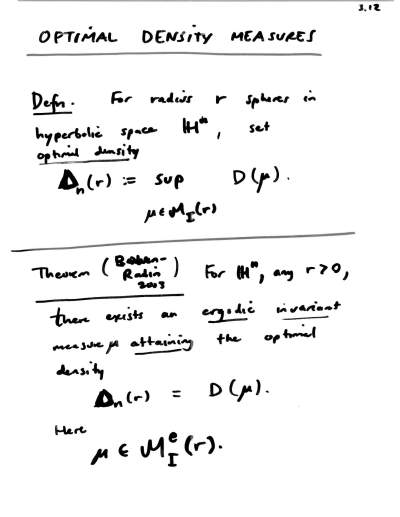 3.12
OPTIMAL DENSITY MEASURES
Defn. For radius r spheres in
hyperbolic space ℍⁿ, set
optimal density
Δₙ(r) := sup D(μ).
μ∈M_I(r)
Theorem (Bowen-
Radin
2003) For ℍⁿ, any r>0,
there exists an ergodic invariant
measure μ attaining the optimal
density
Δₙ(r) = D(μ).
Here
μ ∈ M_I^e(r).